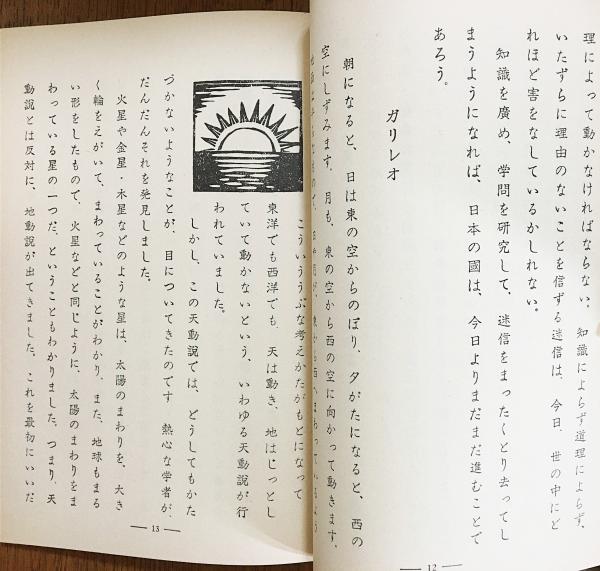 理によって動かなければならない。知識によらず道理によらず、
いたずらに理由のないことを信ずる迷信は、今日、世の中にど
れほど害をなしているかしれない。
知識を廣め、学問を研究して、迷信をまったくとり去ってし
まうようになれば、日本の國は、今日よりまだまだ進むことで
あろう。
ガリレオ
朝になると、日は東の空からのぼり、夕がたになると、西の
空にしずみます。月も、東の空から西の空に向かって動きます。
12
こういううぶな考えかたがもとになって
東洋でも西洋でも、天は動き、地はじっとし
ていて動かないという、いわゆる天動説が行
われていました。
しかし、この天動説では、どうしてもかた
づかないようなことが、目についてきたのです 熱心な学者が、
だんだんそれを発見しました。
火星や金星・木星などのような星は、太陽のまわりを、大き
く輪をえがいて、まわっていることがわかり、また、地球もまる
い形をしたもので、火星などと同じように、太陽のまわりをま
わっている星の一つだ、ということもわかりました。つまり、天
動説とは反対に、地動説が出てきました。これを最初にいいだ
13